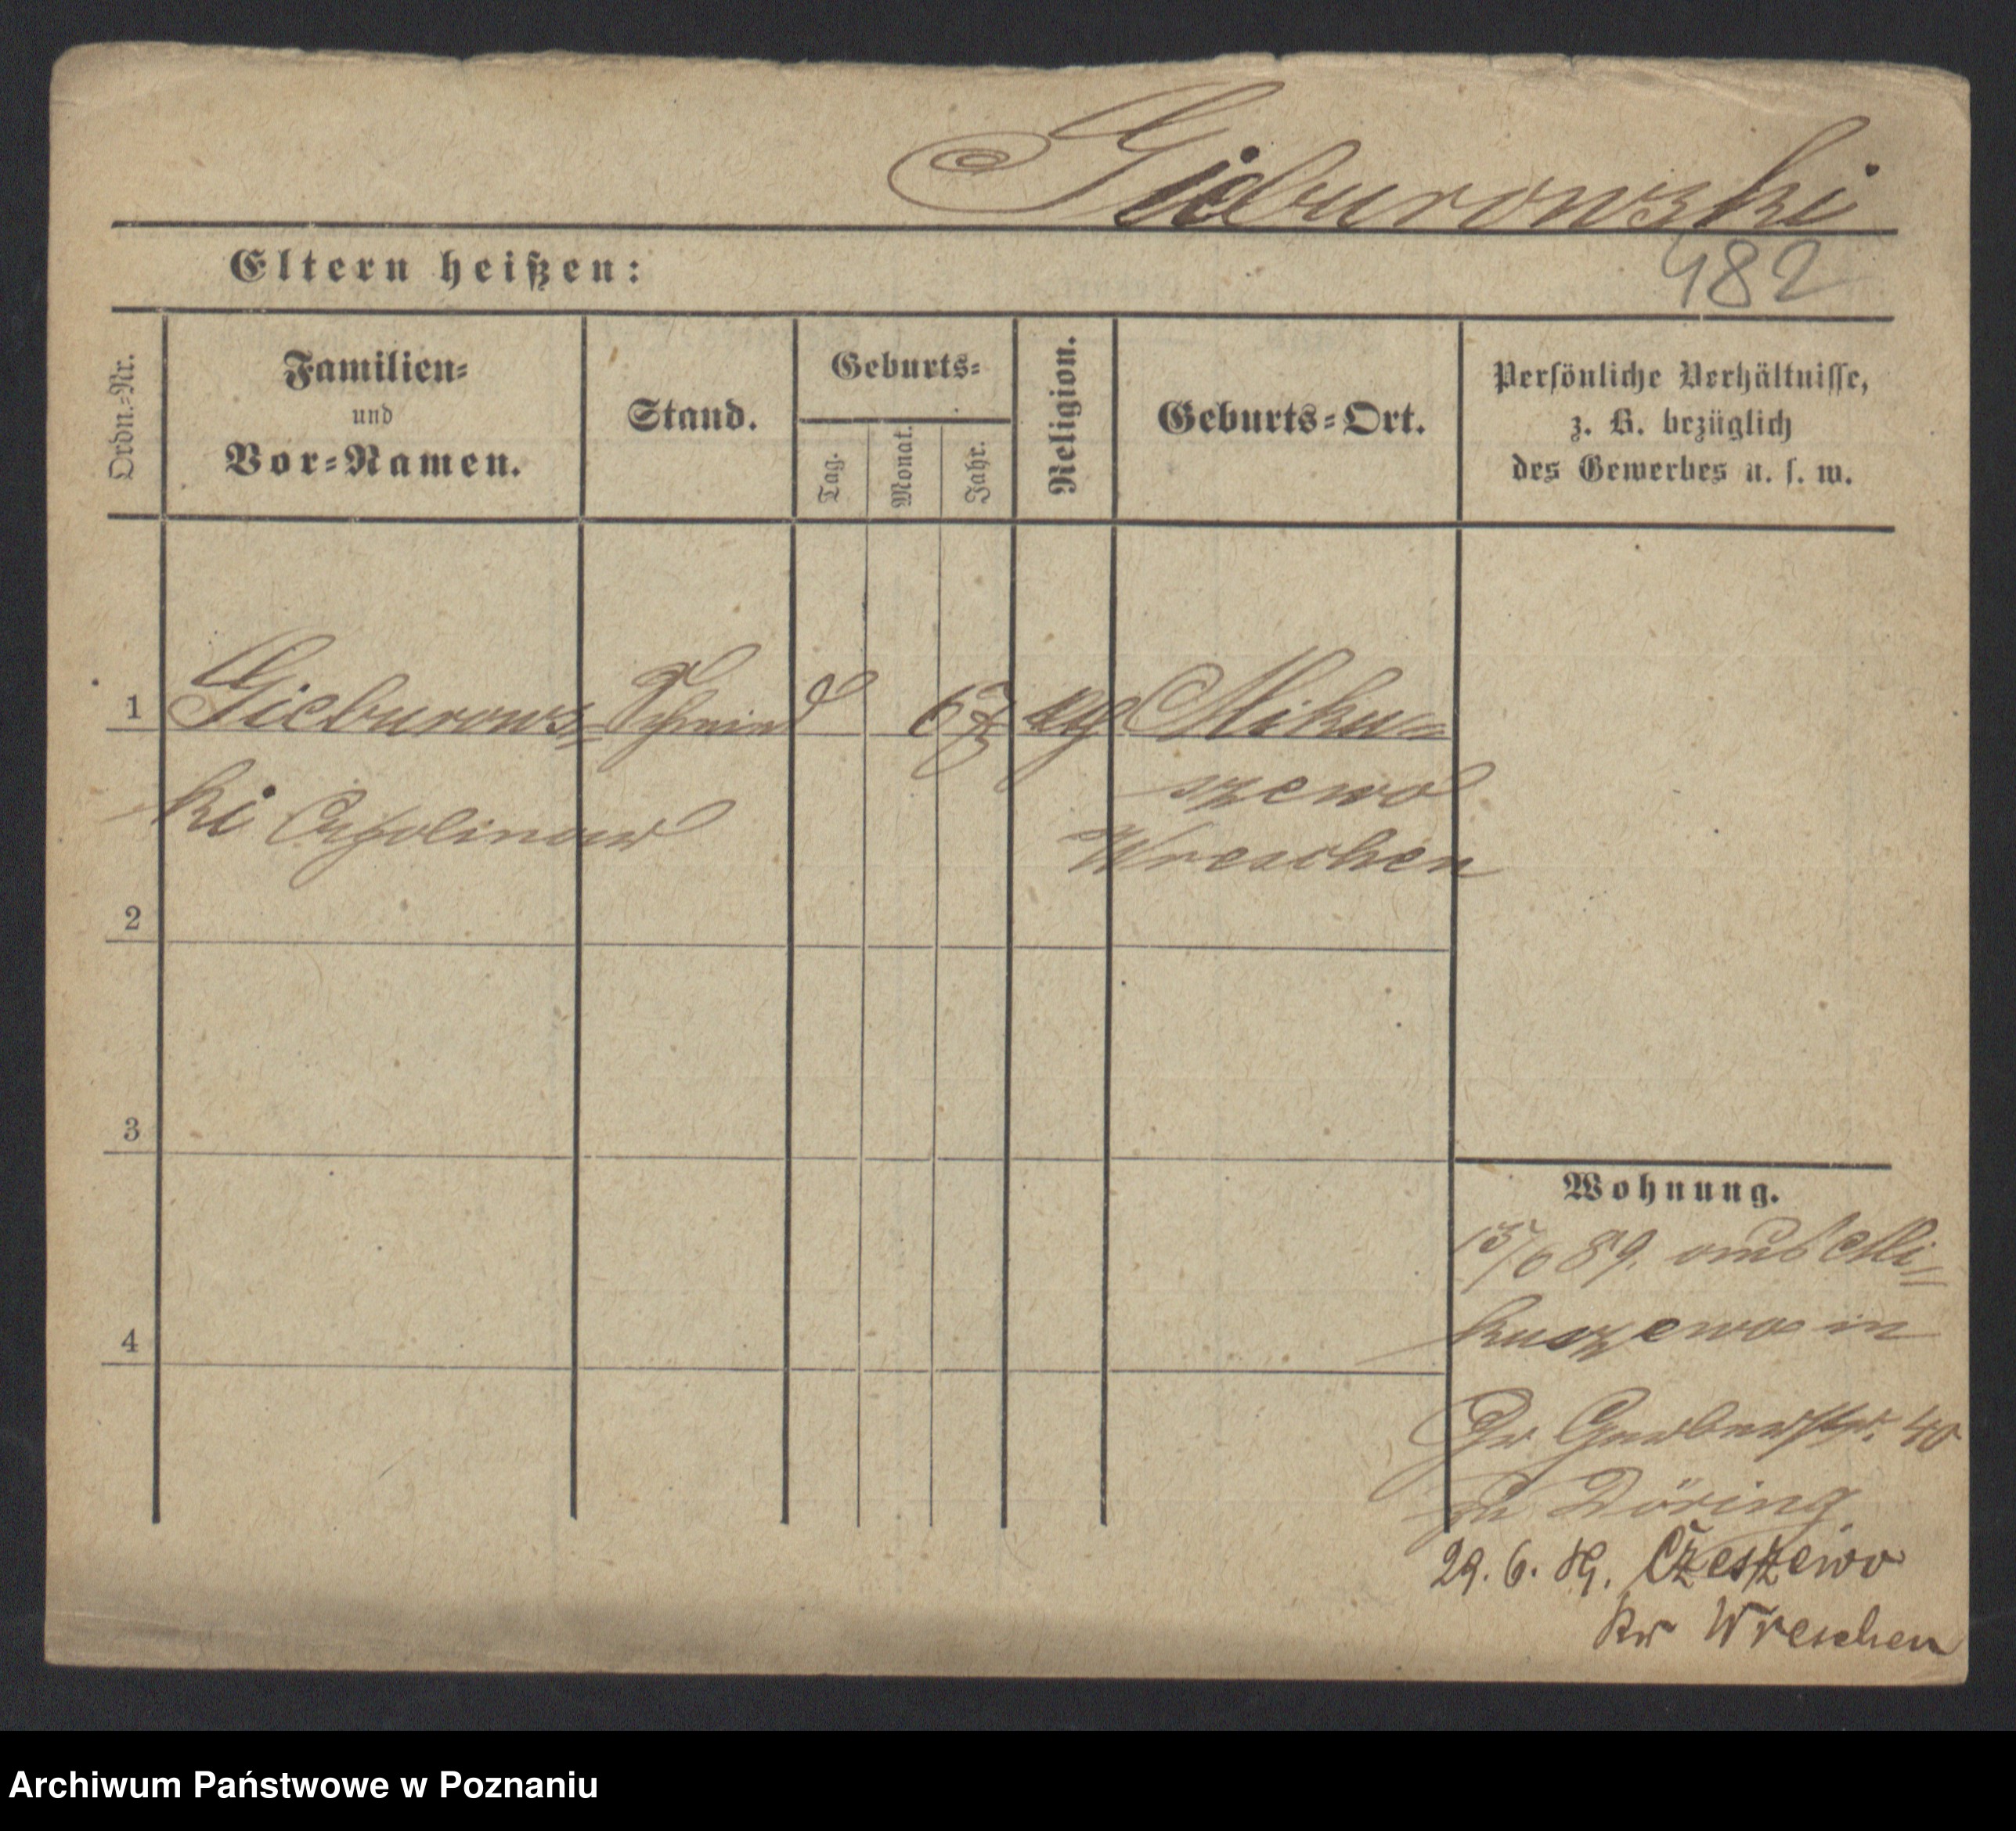 Gieburowski
482
Eltern heißen:
Ordn.-Nr.
Familien-
und
Vor-Namen.
Stand.
Geburts-
Tag.
Monat.
Jahr.
Religion.
Geburts-Ort.
Persönliche Verhältnisse,
z. B. bezüglich
des Gewerbes u. s. w.
1 Gieburows- Schmied 67 Miku-
ki szewo
Wreschen
2
3
4
Wohnung.
15/6 89. aus Mi-
kuszewo in
Gr Gerberstr. 40
zu Döring
29. 6. 89. Czeszewo
Kr Wreschen
Archiwum Państwowe w Poznaniu